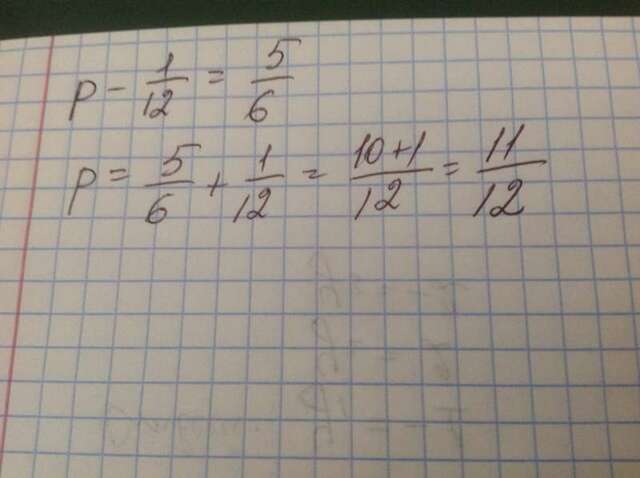 p - 1/12 = 5/6
p = 5/6 + 1/12 = 10+1/12 = 11/12